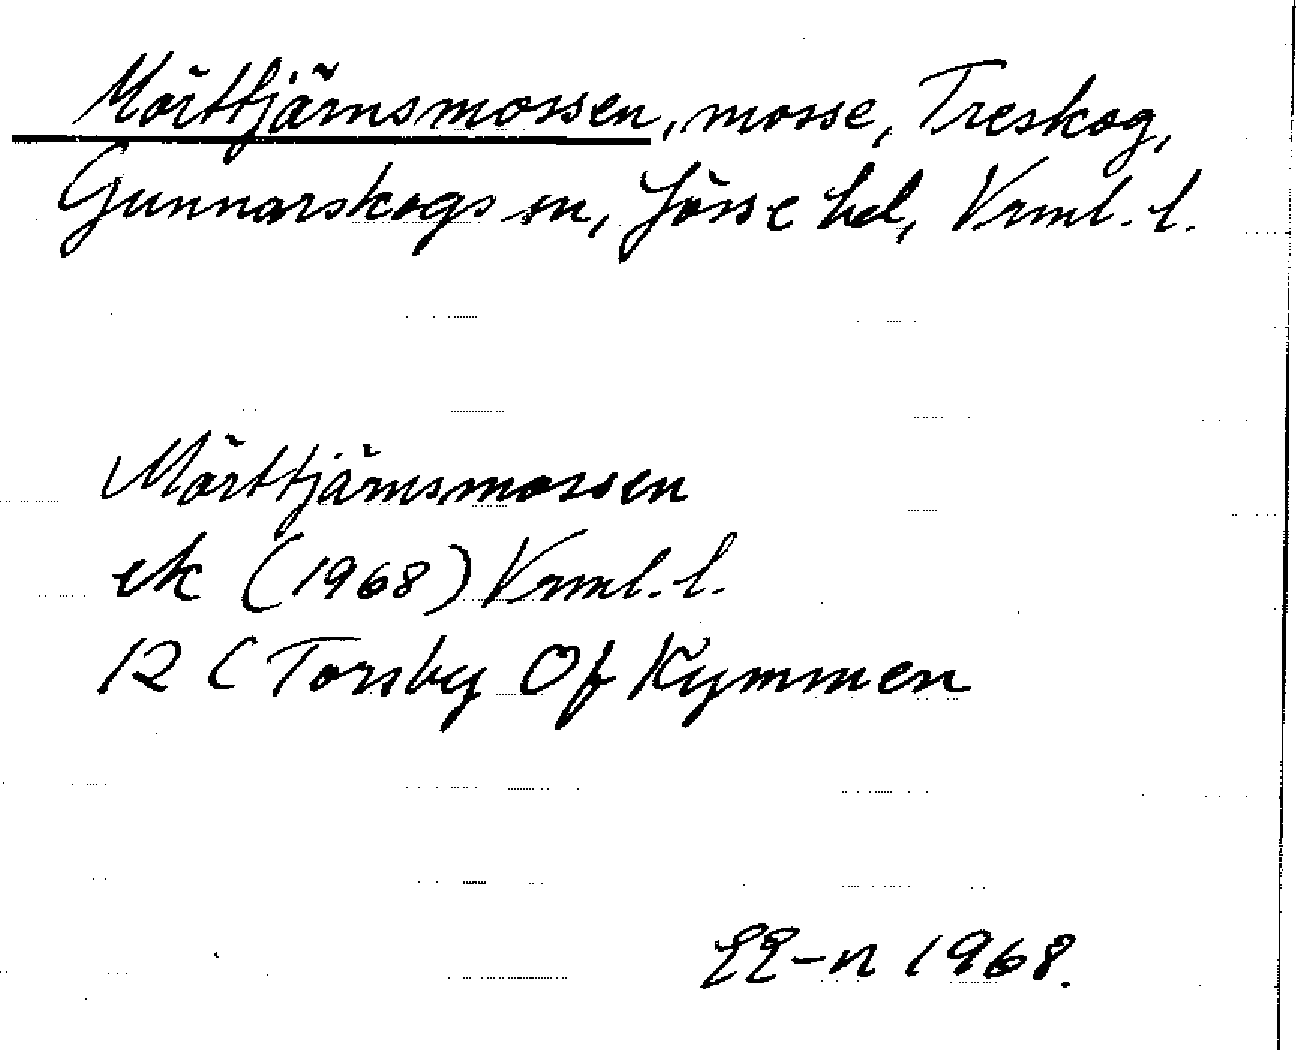 Mörttjärnsmossen, mosse, Treskog,
Gunnarskogs sn, Jösse hd, Vrml. l.
Mörttjärnsmossen
ek (1968) Vrml. l.
12 C Torsby Of Kymmen
EE-n 1968.